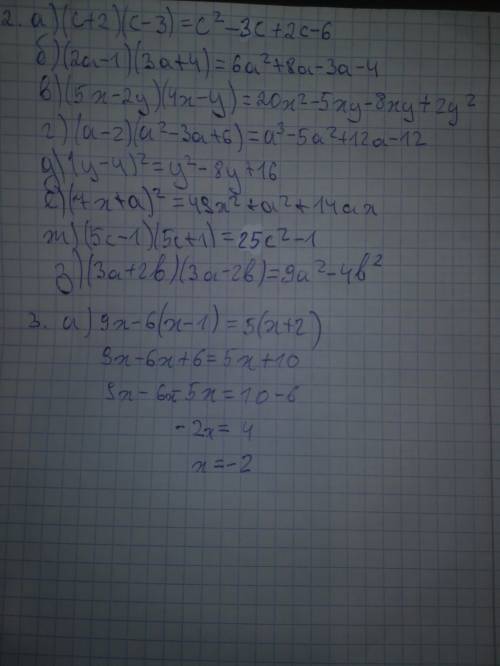 2. а) (c+2)(c-3)=c²-3c+2c-6
б) (2a-1)(3a+4)=6a²+8a-3a-4
в) (5x-2y)(4x-y)=20x²-5xy-8xy+2y²
г) (a-2)(a²-3a+6)=a³-5a²+12a-12
д) (y-4)²=y²-8y+16
е) (7x+a)²=49x²+a²+14ax
ж) (5c-1)(5c+1)=25c²-1
з) (3a+2b)(3a-2b)=9a²-4b²
3. а) 9x-6(x-1)=5(x+2)
9x-6x+6=5x+10
9x-6x-5x=10-6
-2x=4
x=-2